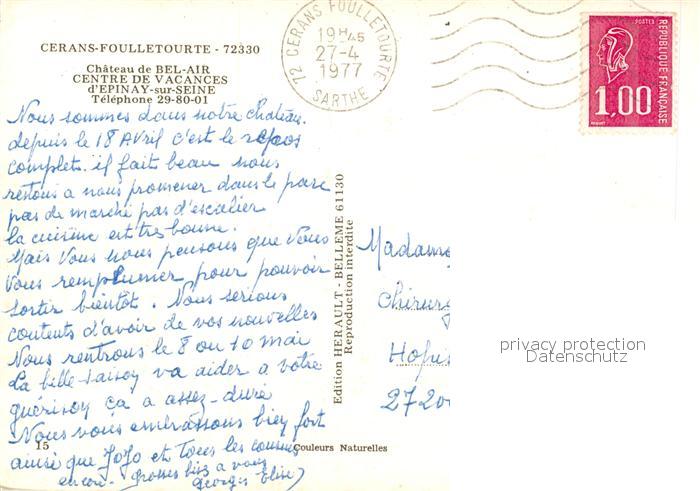 CERANS-FOULLETOURTE - 72330
Château de BEL-AIR
CENTRE DE VACANCES
d'EPINAY-sur-SEINE
Téléphone 29-80-01
72 CERANS FOULLETOURTE
19H45
27-4
1977
SARTHE
POSTES
REPUBLIQUE FRANÇAISE
1,00
Nous sommes dans notre chateau.
depuis le 18 Avril c'est le repos
complet. il fait beau nous
restons a nous promener dans le parc
pas de marché pas d'escalier
la cuisine est très bonne.
Mais Vous nous pensons que Vous
Vous remplumer pour pouvoir
sortir bientôt. Nous serions
contents d'avoir de vos nouvelles
Nous rentrons le 8 ou 10 mai
La belle saison va aider a votre
guérison ça a assez duré
Nous vous embrassons bien fort
ainsi que JoJo et tous les cousins
encore grosses bises a vous
Georges Elise
15
Couleurs Naturelles
Edition HERAULT - BELLEME 61130
Reproduction interdite
Madame
Chirurg
Hopis
2720
privacy protection
Datenschutz